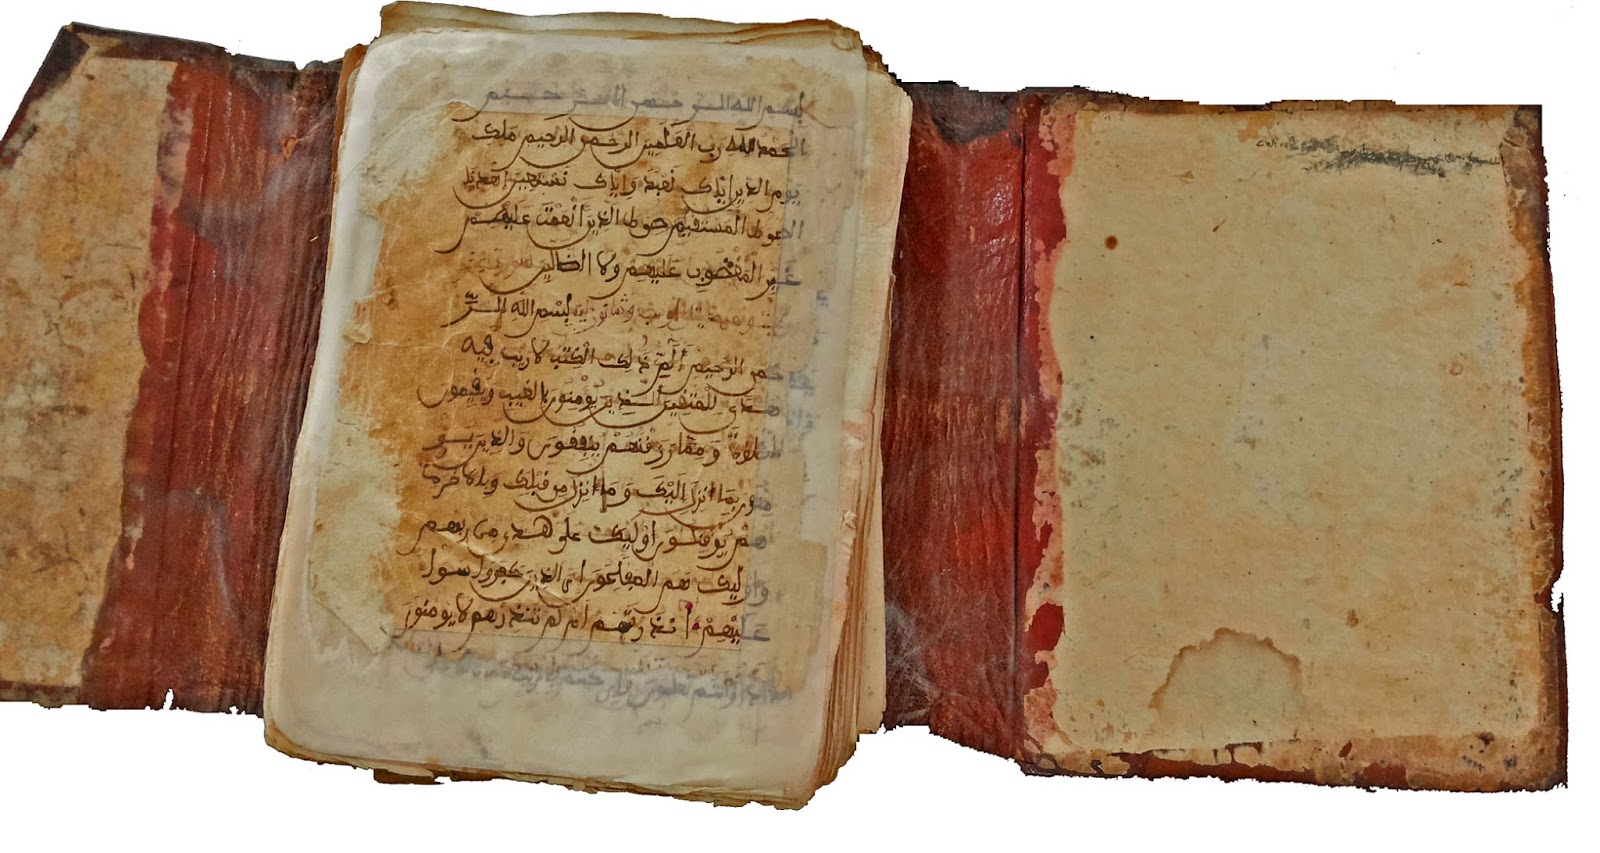 بسم الله الرحمن الرحيم
الحمد لله رب العلمين الرحمن الرحيم ملك
يوم الدين إياك نعبد وإياك نستعين اهدنا
الصرط المستقيم صرط الذين أنعمت عليهم
غير المغضوب عليهم ولا الضالين سورة
بسم الله الر
حمن الرحيم ألم ذلك الكتب لا ريب فيه
هدى للمتقين الذين يؤمنون بالغيب ويقيمون
الصلاة ومما رزقنهم ينفقون والذين يو
منون بما أنزل إليك وما أنزل من قبلك وبالاخرة
هم يوقنون أوليك على هدى من ربهم
وأوليك هم المفلحون إن الذين كفروا سواء
عليهم أنذرتهم أم لم تنذرهم لا يومنون